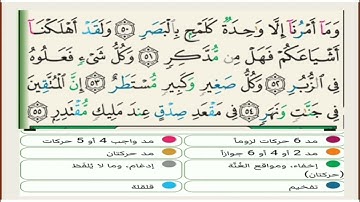 وَمَآ أَمْرُنَآ إِلَّا وَٰحِدَةٌ كَلَمْحٍۭ بِٱلْبَصَرِ ۝٥٠ وَلَقَدْ أَهْلَكْنَآ
أَشْيَاعَكُمْ فَهَلْ مِن مُّدَّكِرٍ ۝٥١ وَكُلُّ شَىْءٍ فَعَلُوهُ
فِى ٱلزُّبُرِ ۝٥٢ وَكُلُّ صَغِيرٍ وَكَبِيرٍ مُّسْتَطَرٌ ۝٥٣ إِنَّ ٱلْمُتَّقِينَ
فِى جَنَّٰتٍ وَنَهَرٍ ۝٥٤ فِى مَقْعَدِ صِدْقٍ عِندَ مَلِيكٍ مُّقْتَدِرٍۭ ۝٥٥
مد 6 حركات لزوماً مد واجب 4 أو 5 حركات
مد 2 أو 4 أو 6 جوازاً مد حركتان
إخفاء، ومواقع الغُنَّة (حركتان) إدغام، وما لا يُلفَظ
تفخيم قلقلة